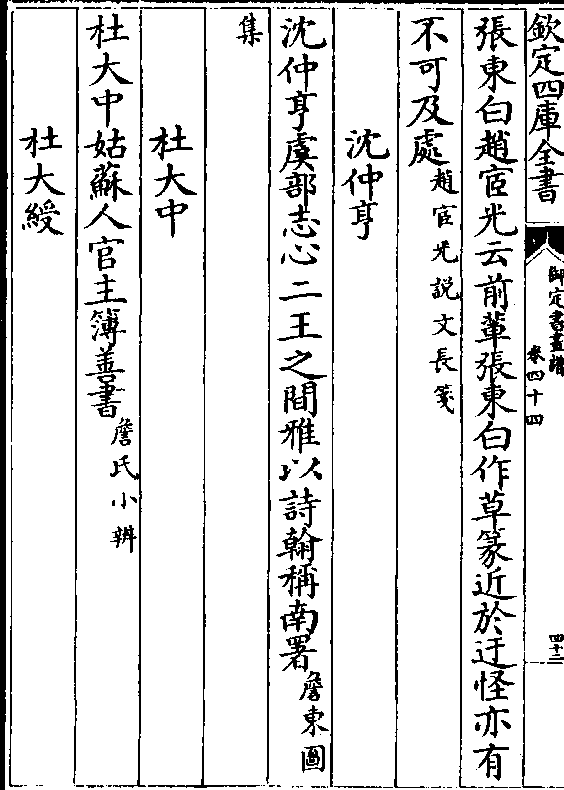 欽定四庫全書
御定書畫譜
卷四十四
四十二
張東白趙宧光云前輩張東白作草篆近於迂怪亦有
不可及處趙宧光說文長箋
沈仲亨
沈仲亨虞部志心二王之間雅以詩翰稱南署詹東圖
集
杜大中
杜大中姑蘇人官主簿善書詹氏小辨
杜大綬